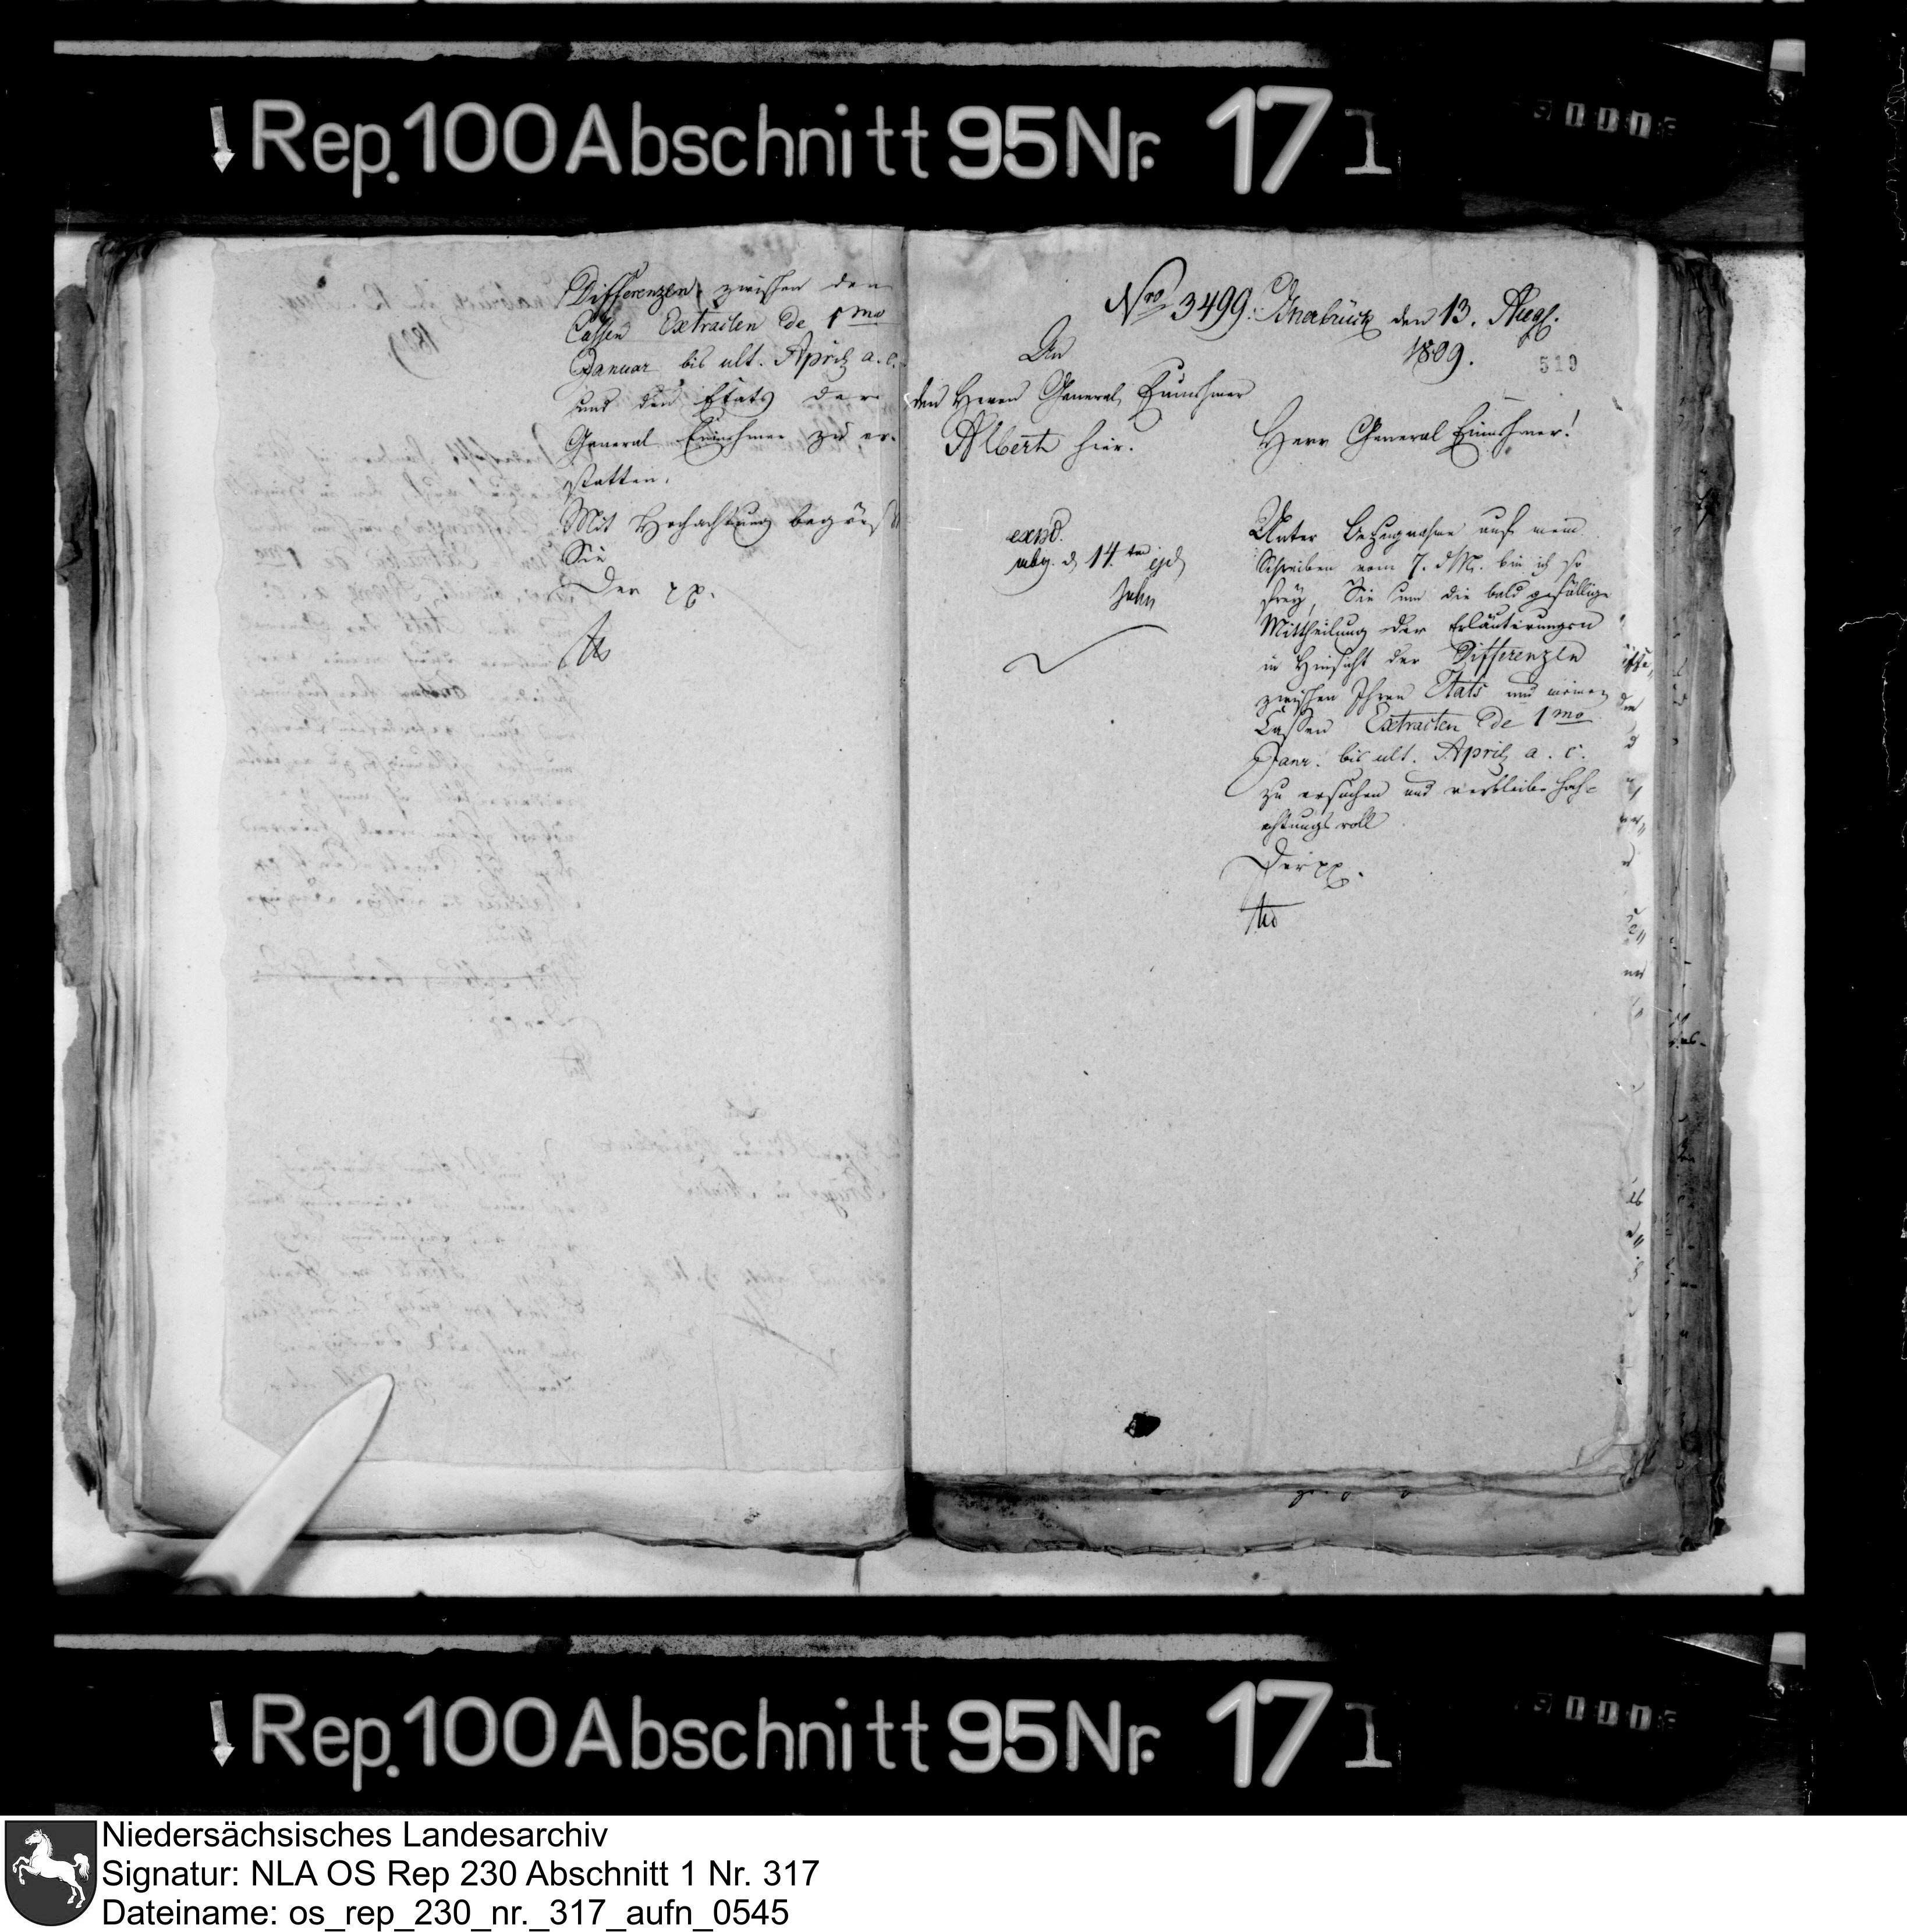 Rep. 100 Abschnitt 95 Nr. 17 1
Differenzen zwischen den
Cassen Extracten de 1mo
Januar bis ult. April a. c.
und den Etats der
General Einnehmer zu er-
statten.
Mit Hochachtung begrüßt
Sie
Der pp.
Nro 3499. Osnabrück den 13. Aug.
1809.
519
An
den Herrn General Einnehmer
Alberti hier.
Herr General Einnehmer!
exped.
abg. d 14.ten ejd
Jahn
Unter Bezugnahme auf mein
Schreiben vom 7. d M. bin ich so
frey, Sie um die bald gefällige
Mittheilung der Erläuterungen
in Hinsicht der Differenzen
zwischen Ihren Etats und meinen
Cassen Extracten de 1mo
Janr. bis ult. April a. c.
zu ersuchen und verbleibe hoch-
achtungsvoll
Der pp.
Rep. 100 Abschnitt 95 Nr. 17 1
Niedersächsisches Landesarchiv
Signatur: NLA OS Rep 230 Abschnitt 1 Nr. 317
Dateiname: os_rep_230_nr._317_aufn_0545